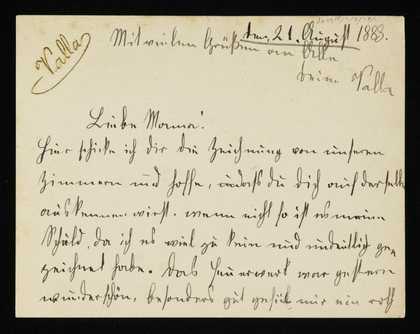 Valla
den 21. August 1883.
Mit vielen Grüßen an Alle
Deine Valla
Liebe Mama!
Hier schicke ich dir die Zeichnung von unseren
Zimmern und hoffe, daß du dich auf derselb
auskennen wirst. wenn nicht so ist es meine
Schuld, da ich es viel zu klein und undeutlich ge-
zeichnet habe. Das Feuerwerk war gestern
wunderschön, besonders gut gefiel mir ein roth